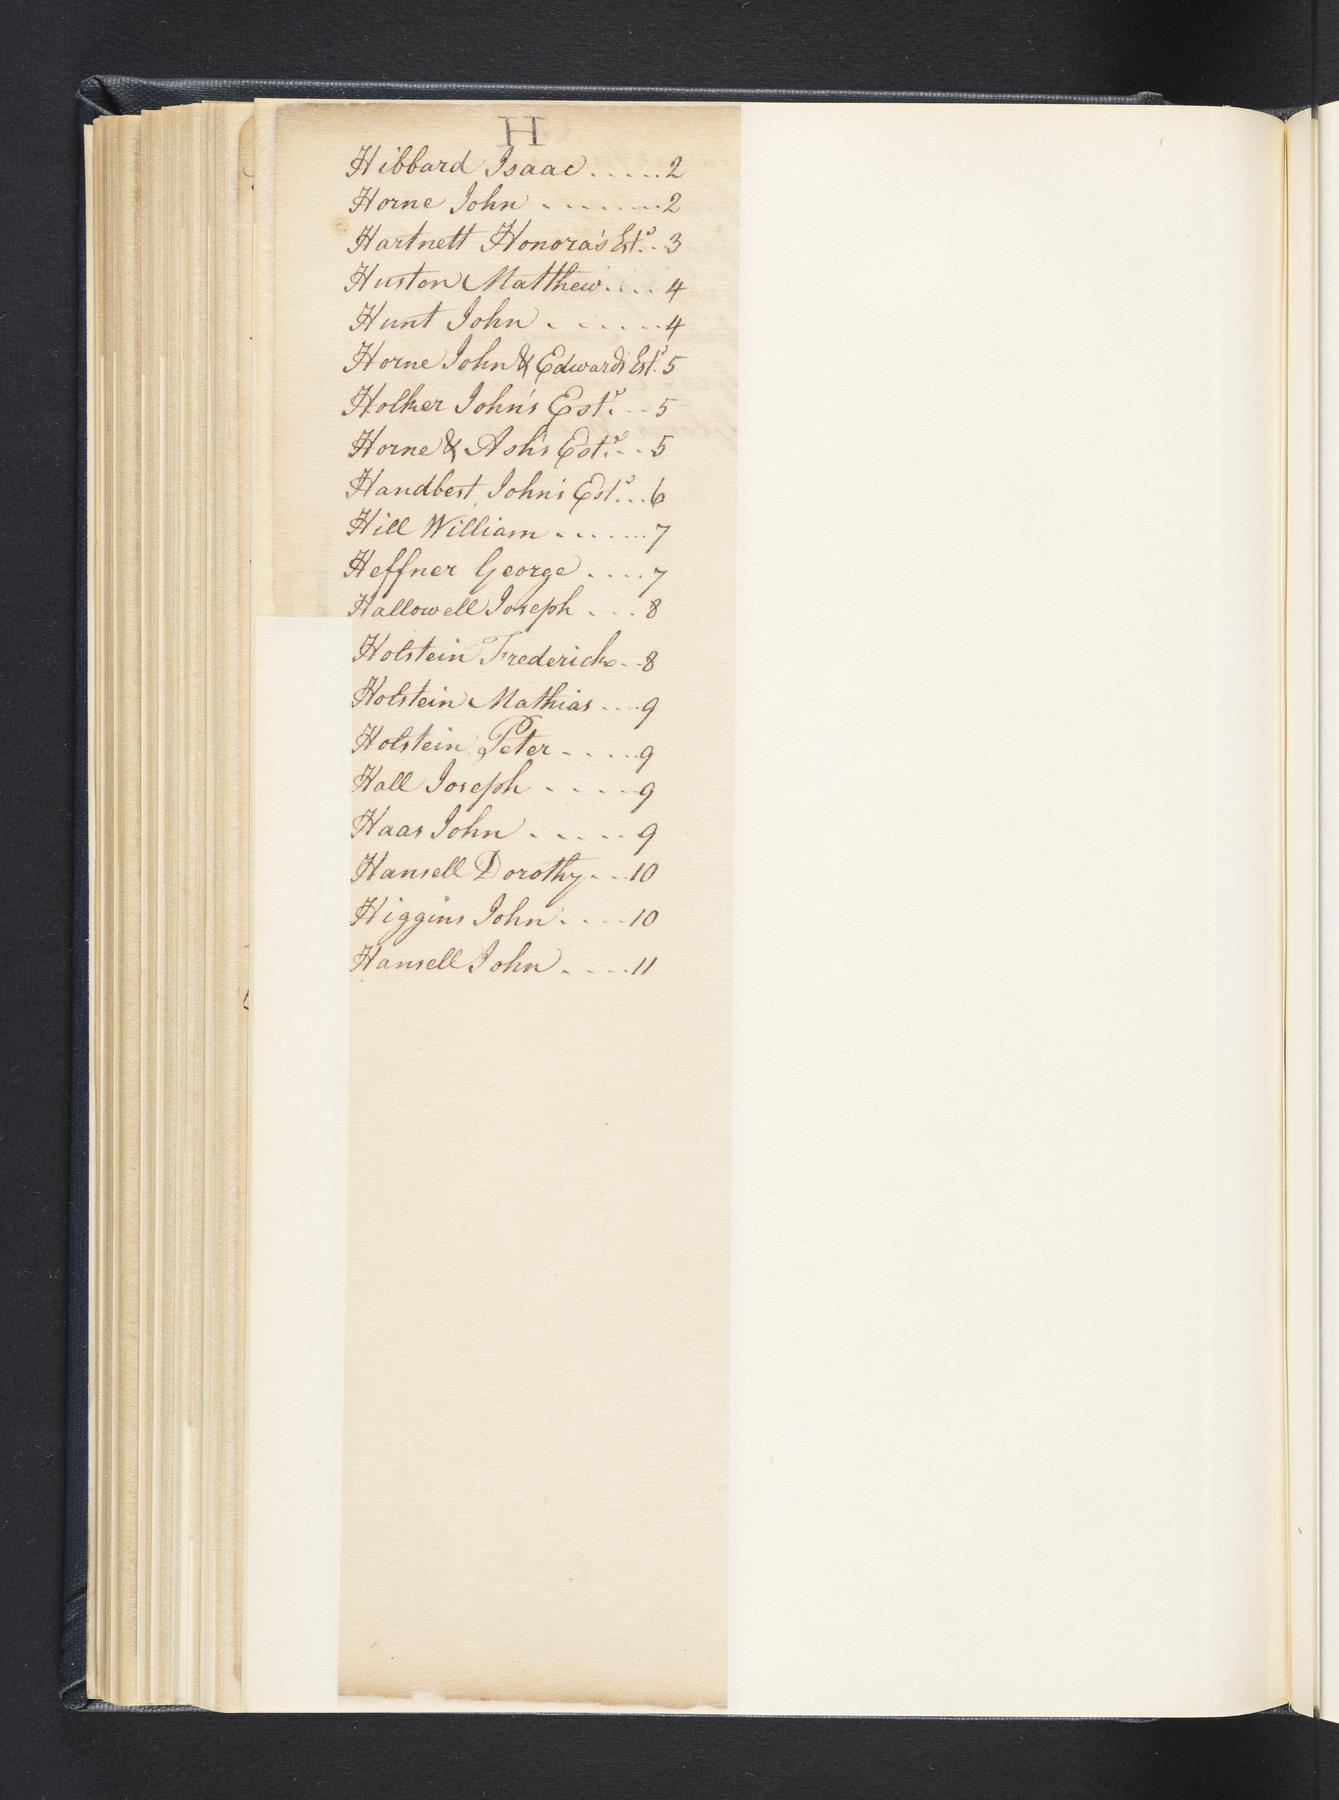 H
Hibbard Isaac ..... 2
Horne John ....... 2
Hartnett Honora's Est.e .. 3
Huston Matthew .... 4
Hunt John ...... 4
Horne John & Edward's Est.e 5
Holker John's Est.e ... 5
Horne & Ash's Est.e ... 5
Handbest John's Est.e ... 6
Hill William ....... 7
Heffner George .... 7
Hallowell Joseph ... 8
Holstein Frederick .. 8
Holstein Mathias .... 9
Holstein Peter ..... 9
Hall Joseph ..... 9
Haas John ..... 9
Hansell Dorothy ... 10
Higgins John .... 10
Hansell John .... 11